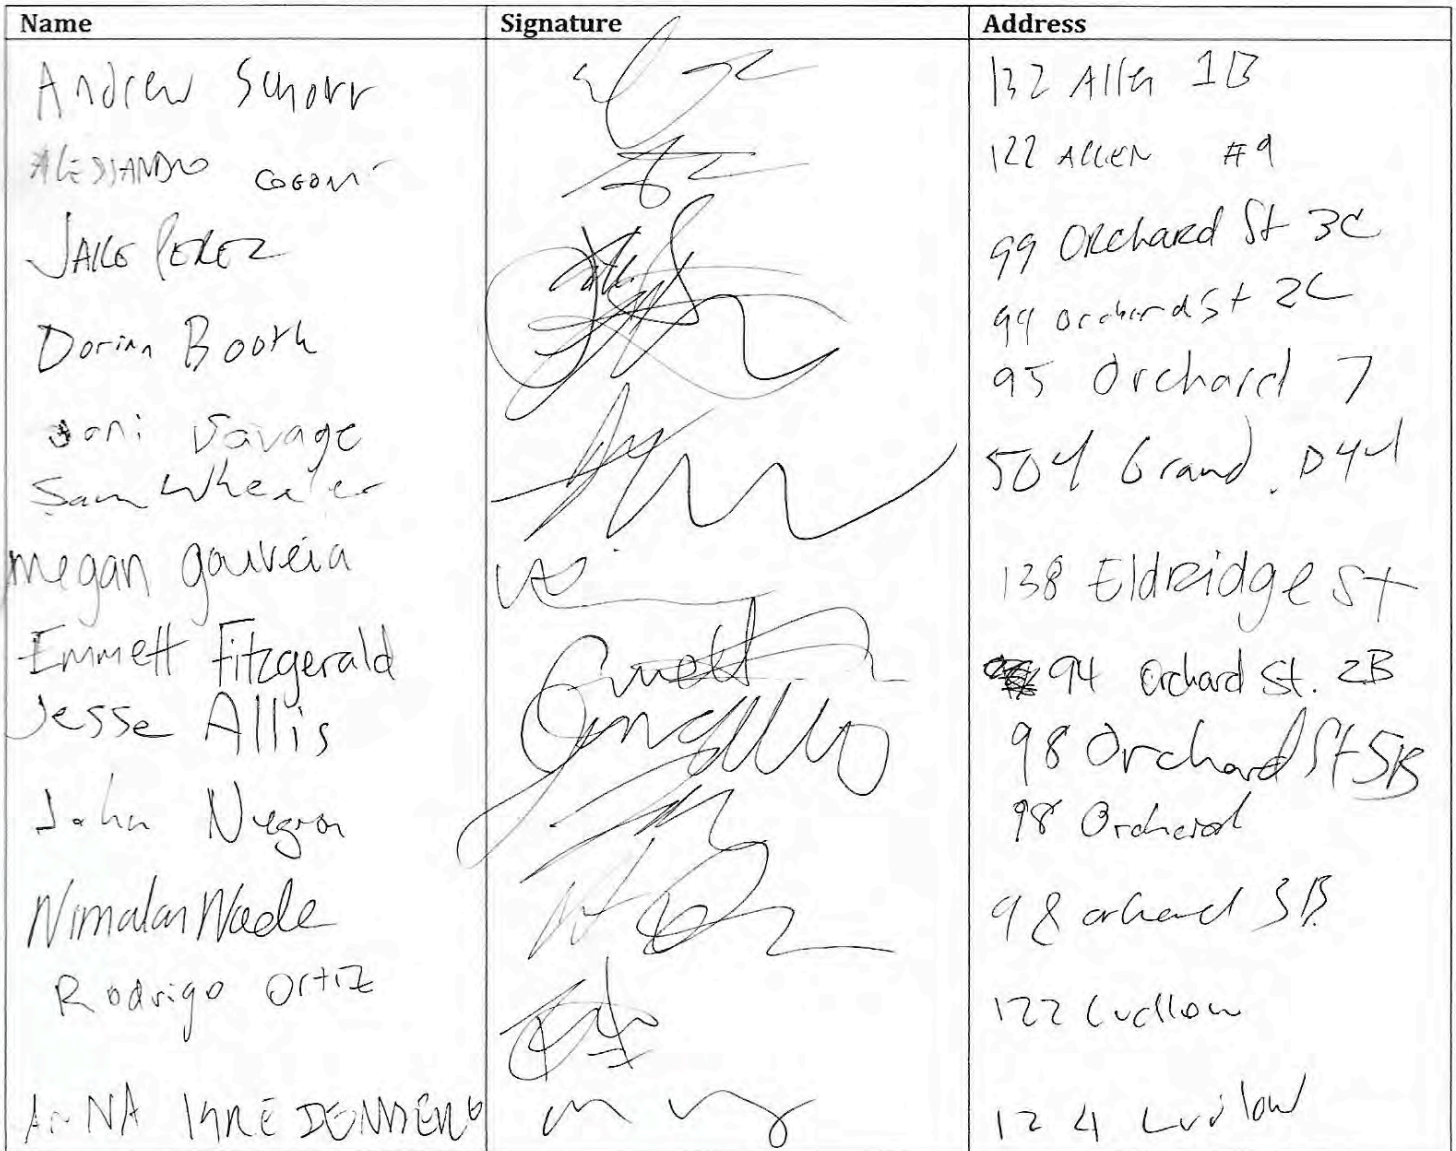 Name Signature Address
Andrew Schorr 132 Allen 1B
ALESSANDRO COGONI 122 ALLEN #9
JAKE PEREZ 99 ORchard St 3C
Dorian Booth 99 orchard St 2C
Joni Savage 95 Orchard 7
Sam Wheeler 504 Grand D44
megan gouveia 138 Eldridge St
Emmett Fitzgerald Emmett 94 Orchard St. 2B
Jesse Allis 98 Orchard St 5B
John Negron 98 Orchard
Nimalan Wade 98 orchard 3B
Rodrigo Ortiz 122 Ludlow
ANNA 124 Ludlow